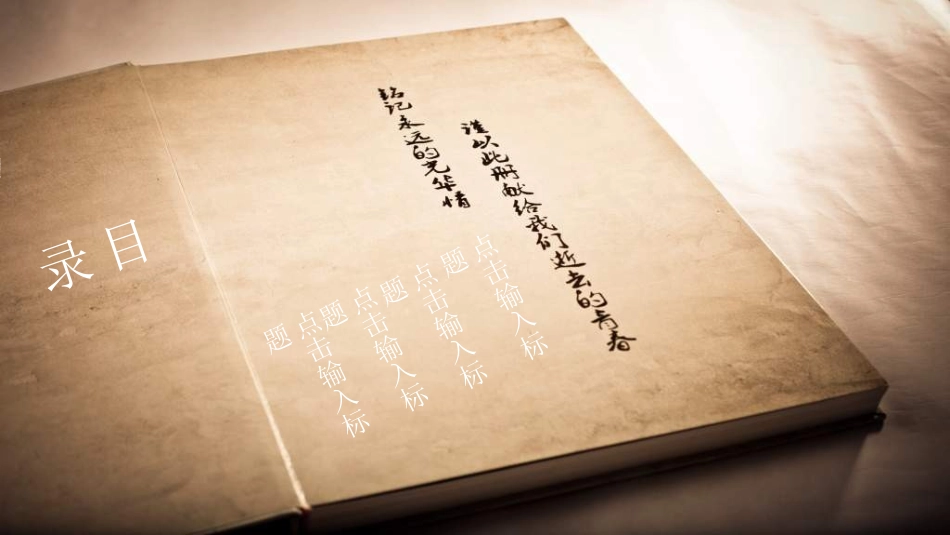 谨以此册献给我们逝去的青春
铭记永远的光华情
目录
点击输入标
题
点击输入标
题
点击输入标
题
点击输入标
题